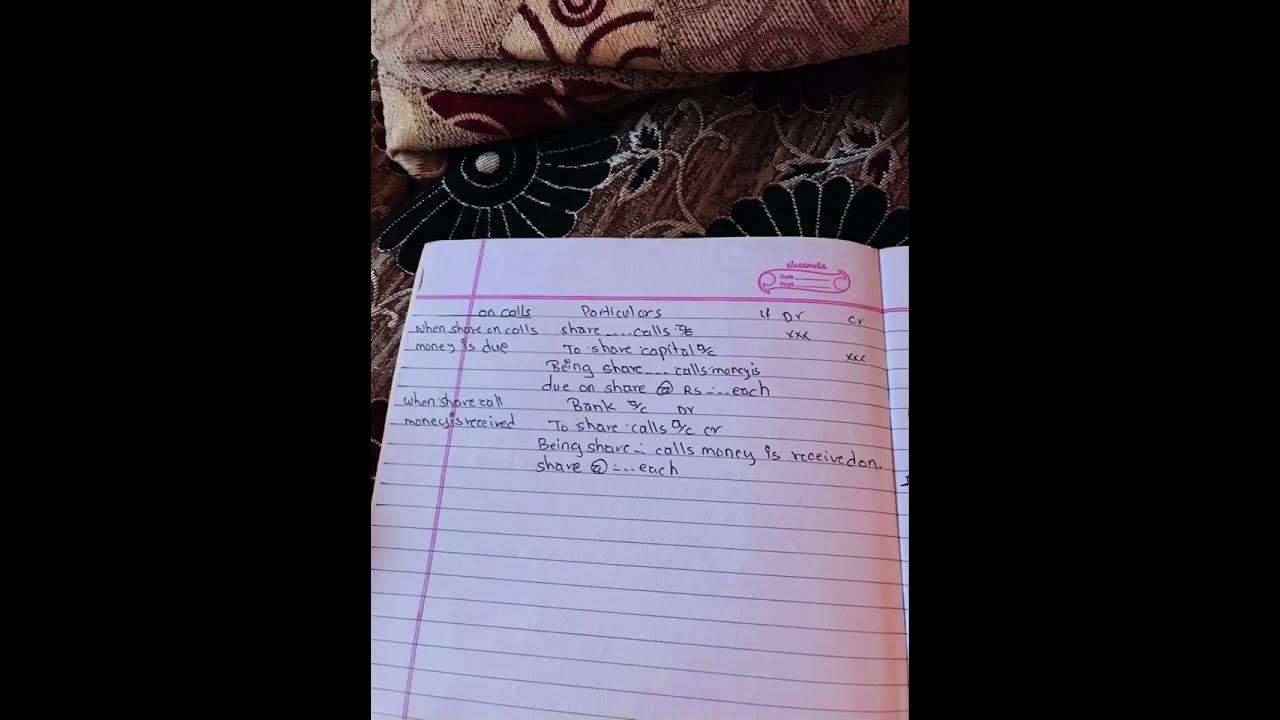 classmate
Date
Page
on calls Particulars Lf Dr Cr
when share on calls share ---- calls a/c xxx
money is due To share capital a/c xxx
Being share ---- calls money is
due on share @ Rs ---- each
when share call Bank a/c Dr
money is received To share calls a/c cr
Being share -- calls money is received on
share @ ---- each